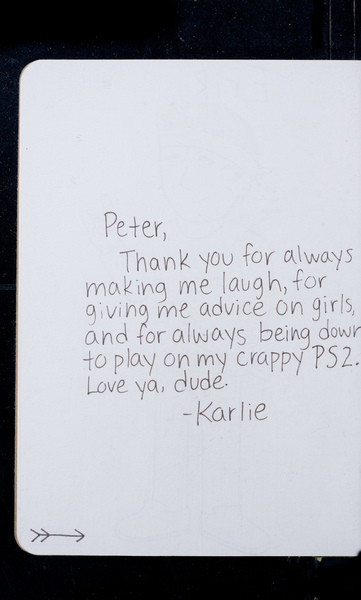 Peter,
Thank you for always
making me laugh, for
giving me advice on girls,
and for always being down
to play on my crappy PS2.
Love ya, dude.
-Karlie